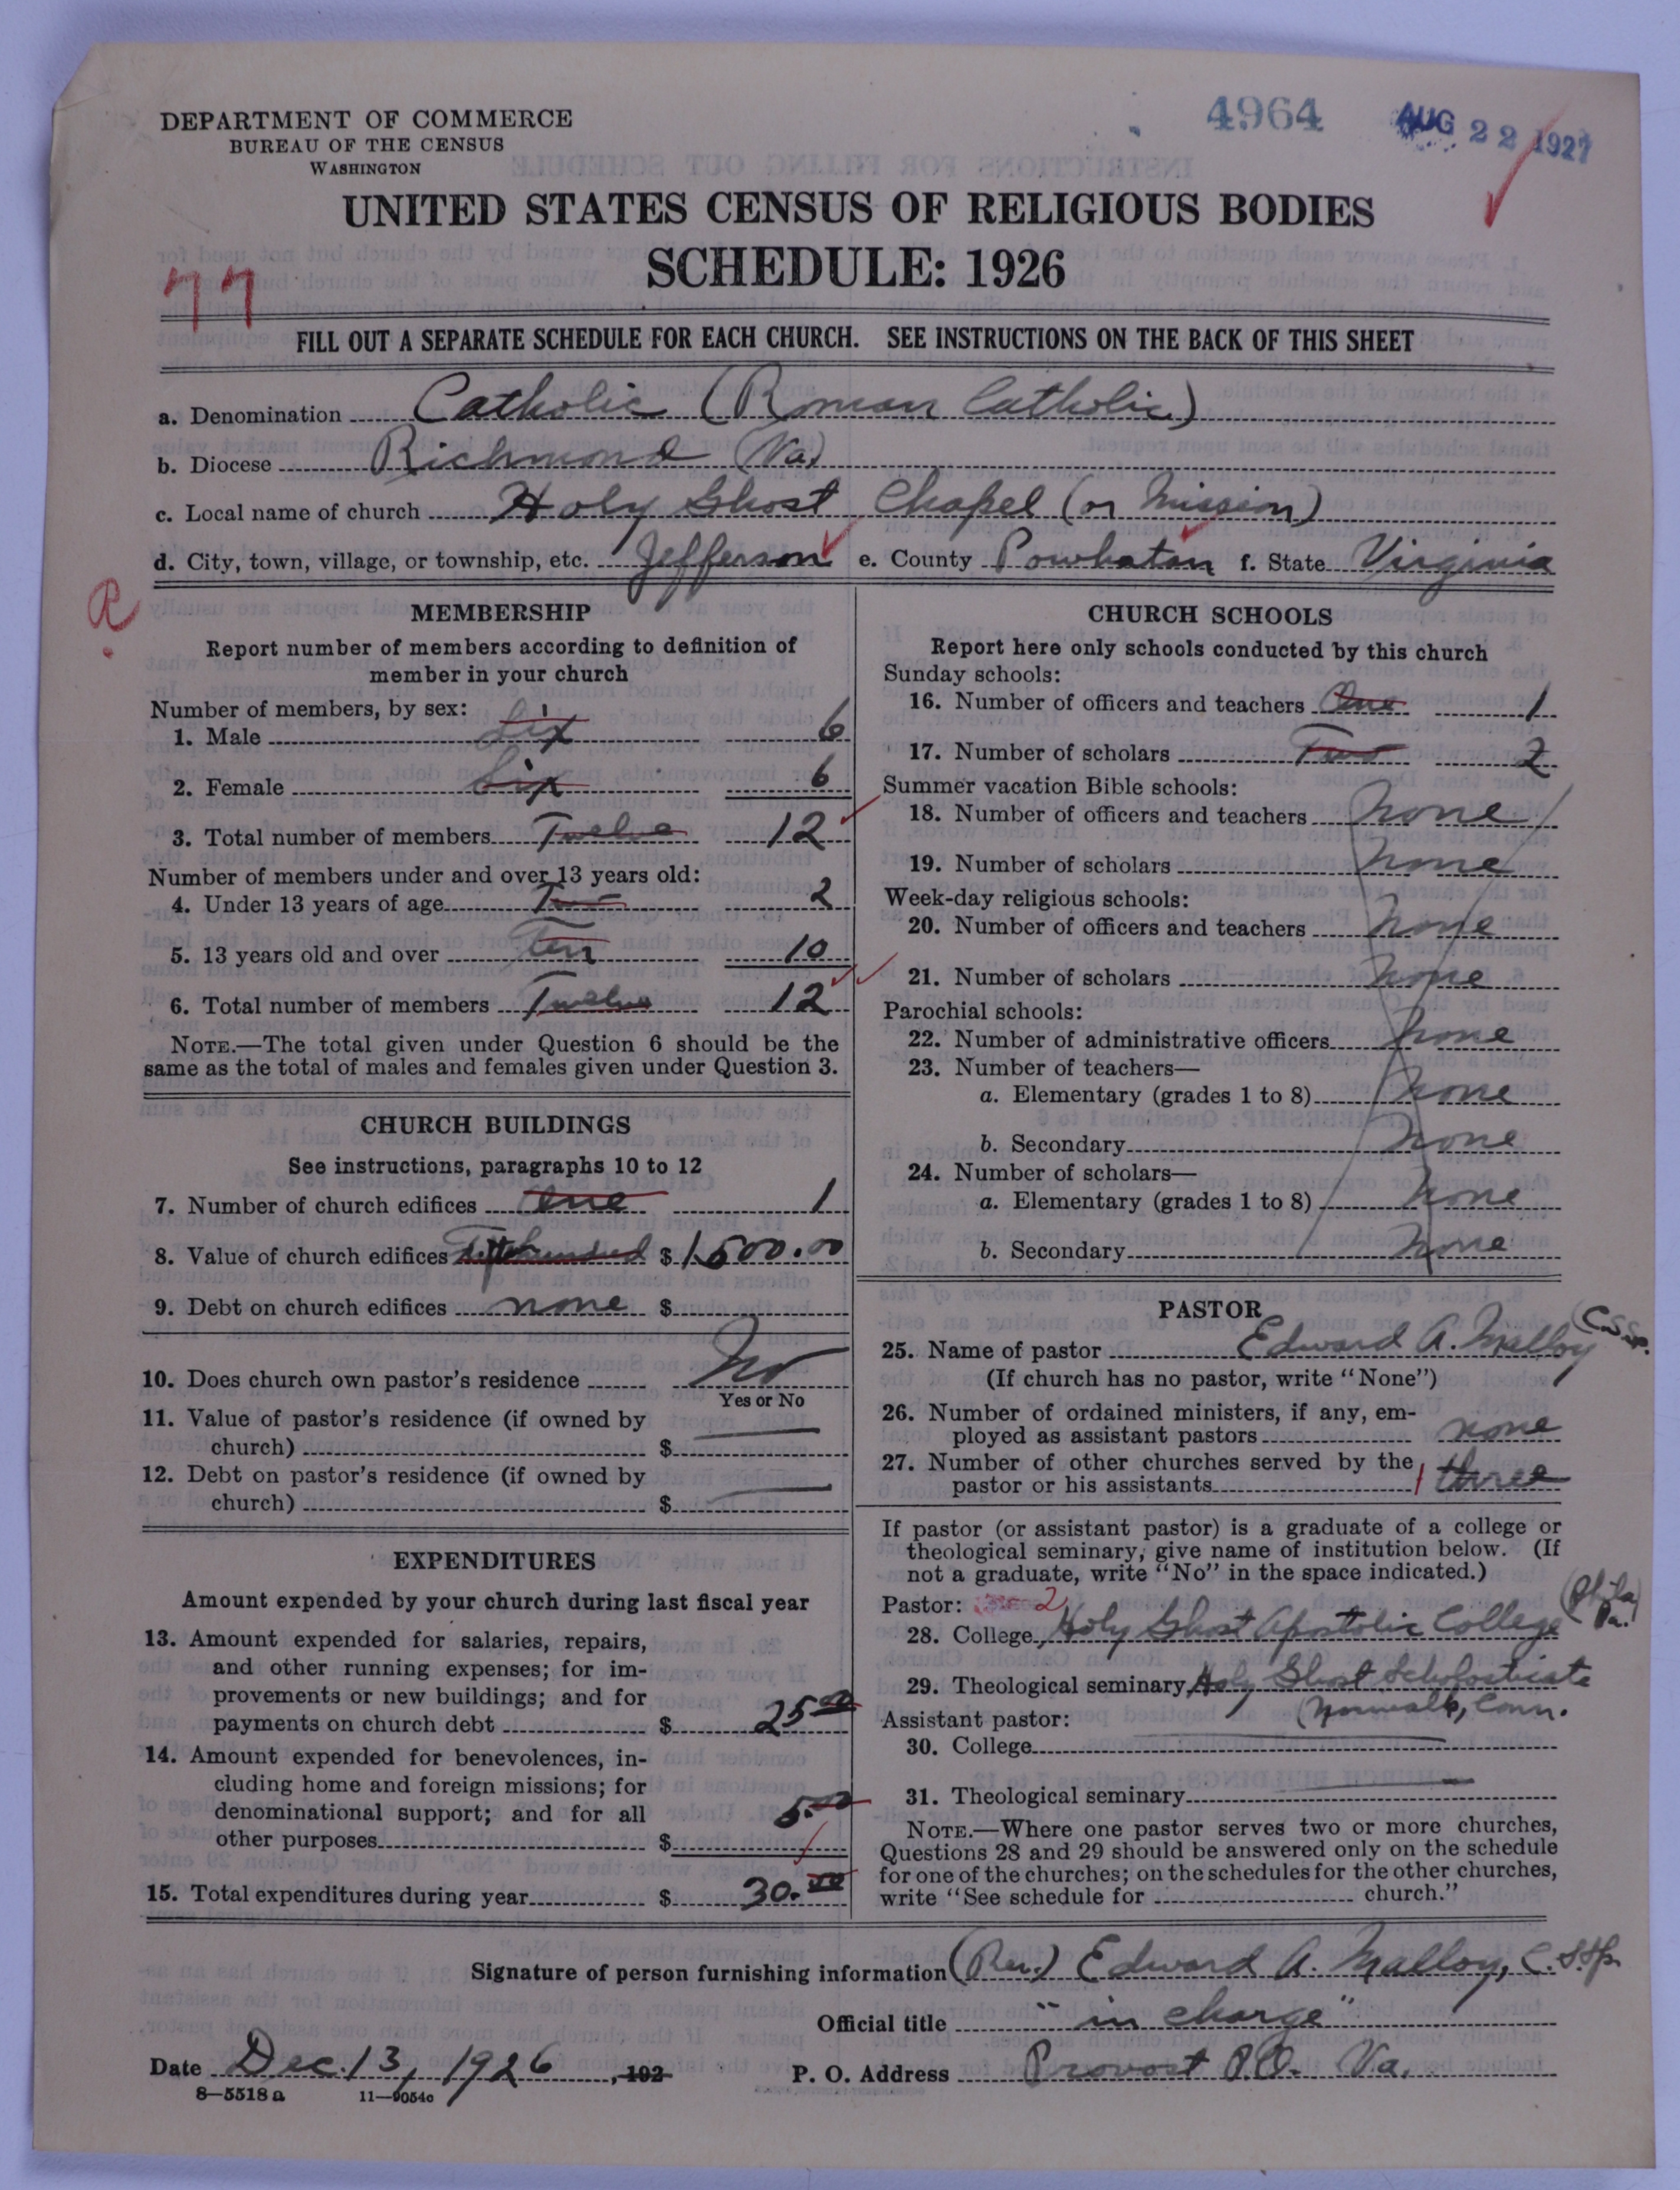 DEPARTMENT OF COMMERCE
BUREAU OF THE CENSUS
WASHINGTON
4964
AUG 22 1927
UNITED STATES CENSUS OF RELIGIOUS BODIES
SCHEDULE: 1926
77
FILL OUT A SEPARATE SCHEDULE FOR EACH CHURCH. SEE INSTRUCTIONS ON THE BACK OF THIS SHEET
a. Denomination Catholic (Roman Catholic)
b. Diocese Richmond (Va.)
c. Local name of church Holy Ghost Chapel (or Mission)
d. City, town, village, or township, etc. Jefferson e. County Powhatan f. State Virginia
R.
MEMBERSHIP
Report number of members according to definition of
member in your church
Number of members, by sex:
1. Male Six 6
2. Female Six 6
3. Total number of members Twelve 12
Number of members under and over 13 years old:
4. Under 13 years of age Two 2
5. 13 years old and over Ten 10
6. Total number of members Twelve 12
NOTE.—The total given under Question 6 should be the
same as the total of males and females given under Question 3.
CHURCH BUILDINGS
See instructions, paragraphs 10 to 12
7. Number of church edifices One 1
8. Value of church edifices $ 1500.00
9. Debt on church edifices none $
10. Does church own pastor's residence No
Yes or No
11. Value of pastor's residence (if owned by
church) $
12. Debt on pastor's residence (if owned by
church) $
EXPENDITURES
Amount expended by your church during last fiscal year
13. Amount expended for salaries, repairs,
and other running expenses; for im-
provements or new buildings; and for
payments on church debt $ 25.00
14. Amount expended for benevolences, in-
cluding home and foreign missions; for
denominational support; and for all
other purposes $ 5.00
15. Total expenditures during year $ 30.00
CHURCH SCHOOLS
Report here only schools conducted by this church
Sunday schools:
16. Number of officers and teachers One 1
17. Number of scholars Two 2
Summer vacation Bible schools:
18. Number of officers and teachers none
19. Number of scholars none
Week-day religious schools:
20. Number of officers and teachers none
21. Number of scholars none
Parochial schools:
22. Number of administrative officers none
23. Number of teachers—
a. Elementary (grades 1 to 8) none
b. Secondary none
24. Number of scholars—
a. Elementary (grades 1 to 8) none
b. Secondary none
PASTOR
25. Name of pastor Edward A. Malloy (C.S.Sp.
(If church has no pastor, write "None")
26. Number of ordained ministers, if any, em-
ployed as assistant pastors none
27. Number of other churches served by the
pastor or his assistants three
If pastor (or assistant pastor) is a graduate of a college or
theological seminary, give name of institution below. (If
not a graduate, write "No" in the space indicated.)
Pastor: 2
28. College Holy Ghost Apostolic College (Phila Pa.)
29. Theological seminary Holy Ghost Scholasticate
(Norwalk, Conn.
Assistant pastor:
30. College
31. Theological seminary
NOTE.—Where one pastor serves two or more churches,
Questions 28 and 29 should be answered only on the schedule
for one of the churches; on the schedules for the other churches,
write "See schedule for church."
Signature of person furnishing information (Rev.) Edward A. Malloy, C.S.Sp.
Official title "in charge"
Date Dec. 13, 1926, 192 P. O. Address Provost P.O. Va.
8—5518 a 11—9054c